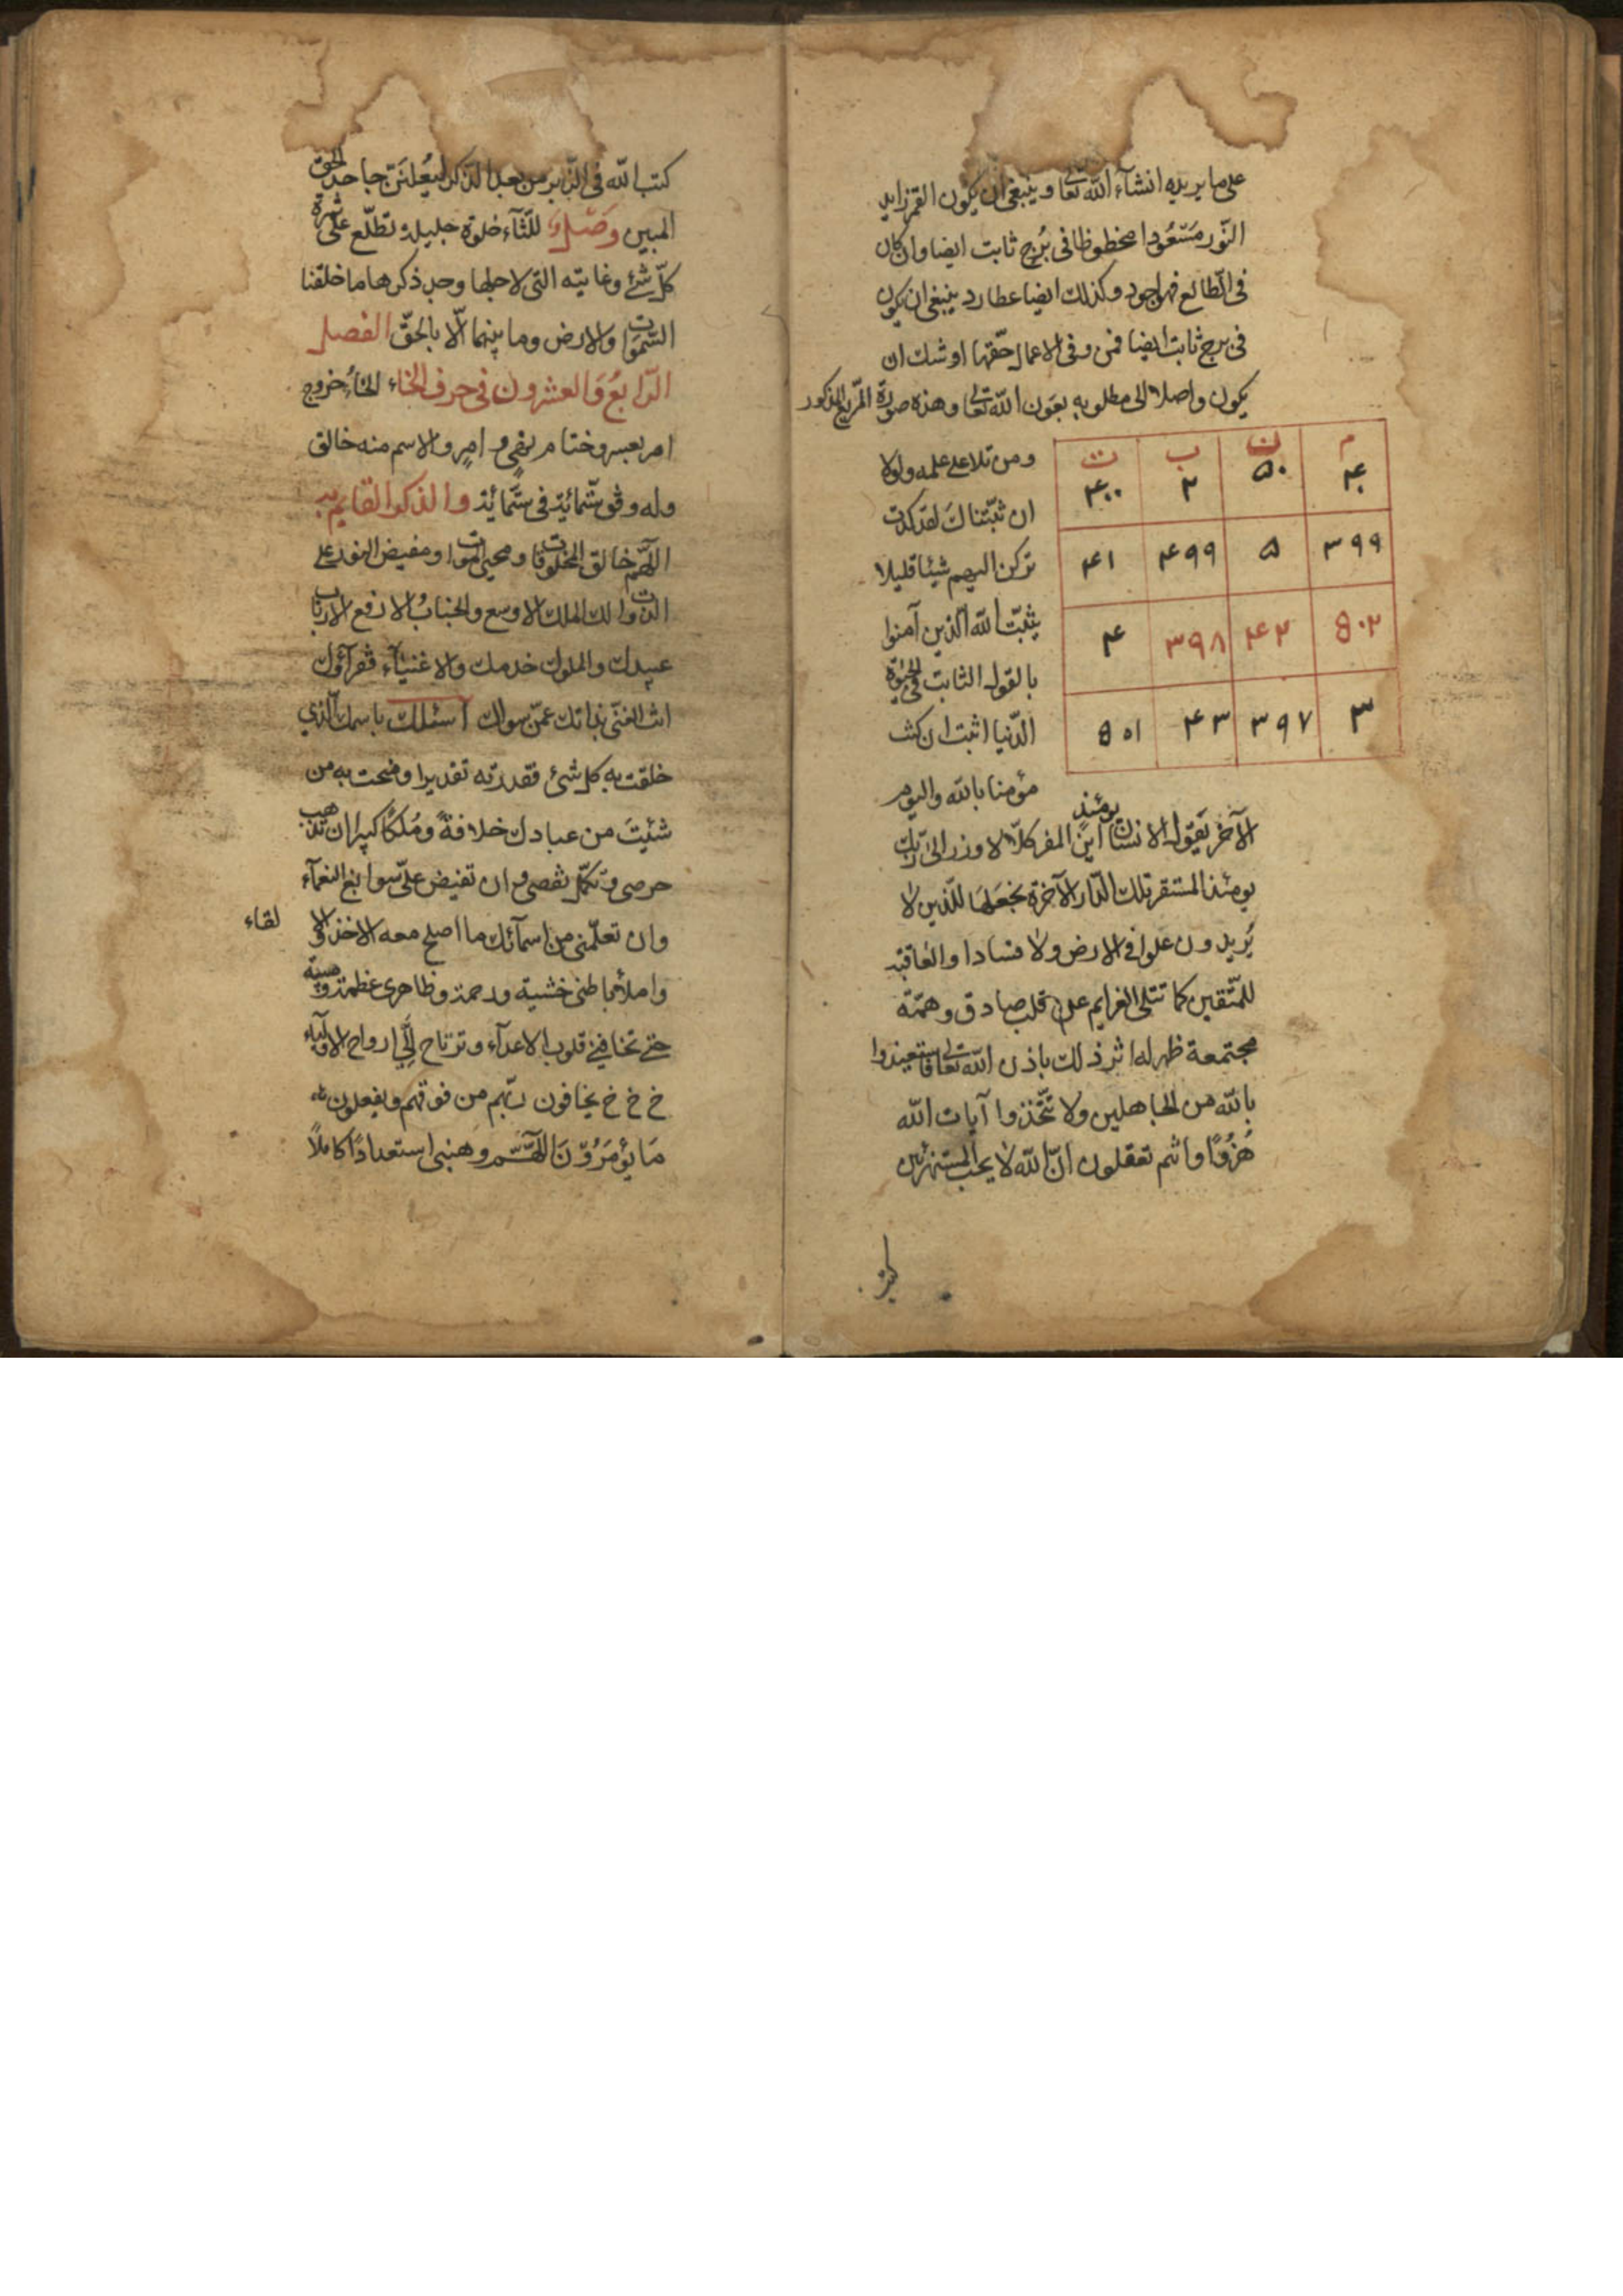 على ما يريده انشآء الله تعالى وينبغى ان يكون القمر زايد
النّور مَسْعُودا محظوظا فى بُرج ثابت ايضا وان كان
فى الطالع فهو اجود وكذلك ايضا عطارد ينبغى ان يكون
فى برج ثابت ايضا فمن وفى الاعمال حقّها اوشك ان
يكون واصلا الى مطلوبه بعَون الله تعالى وهذه صورة المربّع المذكور
م ن ب ت
۴۰ ۵۰ ۲ ۴۰۰
۳۹۹ ۵ ۴۹۹ ۴۱
۵۰۲ ۴۲ ۳۹۸ ۴
۳ ۳۹۷ ۴۳ ۵۰۱
ومن تلا على علمه ولولا
ان ثبّتناكَ لقد كدت
تركن اليهم شيئا قليلا
يثبّت الله الذين آمنوا
بالقول الثابت فى الحيوٰة
الدّنيا اثبت ان كنت
مؤمنا بالله واليوم
الآخر يَقوُل الانسان يومئذٍ اين المفر كلّا لا وزر الى ربّك
يومئذ المستقر تلك الدّار الآخرة نجعَلهَا للّذين لا
يُريدون علوا فى الارض ولا فسادا والعاقبة
للمتّقين كما تتلى العزايم عن قلب صادق وهمّة
مجتمعة ظهر له اثر ذلك باذن الله تعالى فاستعيذوا
بالله من الجاهلين ولا تتّخذوا آيات الله
هُزُوًا وانتم تعقلون انّ الله لا يحب المستهزئين
كتب
كتب الله فى الزّبر من بعد الذكر ليُعلنَنّ جاحد الحقّ
المبين وَصْل للثّآء خلوة جليلة تطلّع على ثمرة
كلّ شئ وغايته التى لاجلها وجد ذكرها ما خلقنا
السّمٰوات والارض وما بينهما الّا بالحقّ الفصل
الرّابعُ وَالعشرون فى حرف الخاء الخاُء خروج
امر بعسر وختام امر والاسم منه خالق
وله وفق ستّمائة فى ستّمائة والذكر القايم به
اللّهمّ خالق المخلوقات ومحيى الاموات ومفيض النور على
الذّوات لك الملك الاوسع والجنابُ الارفع الارباب
عبيدك والملوك خدمك والاغنيآء فقرآؤك
انت الغنى بذاتك عمّن سواك أسئلك باسمك الّذي
خلقت به كل شئ فقدرته تقديرا ومنحت به من
شئتَ من عبادك خلافةً ومُلكًا كبيرا ان تذهب
حرصى وتكمّل نقصى وان تفيض علىّ سوابغ النعمآء
وان تعلّمنى من اسمآئك ما اصلح معه الاخذ والالقاء
واملأ باطنى خشية ورحمة وظاهرى عظمة وهيبة
حتى تخافنى قلوب الاعدآء وترتاح اِلَىّ ارواح الاوليآء
خ خ خ يخافون ربّهم من فوقهم ويفعلون
مَا يؤمَرُوّنَ اللّهُمّ وهبنى استعدادًا كاملًا